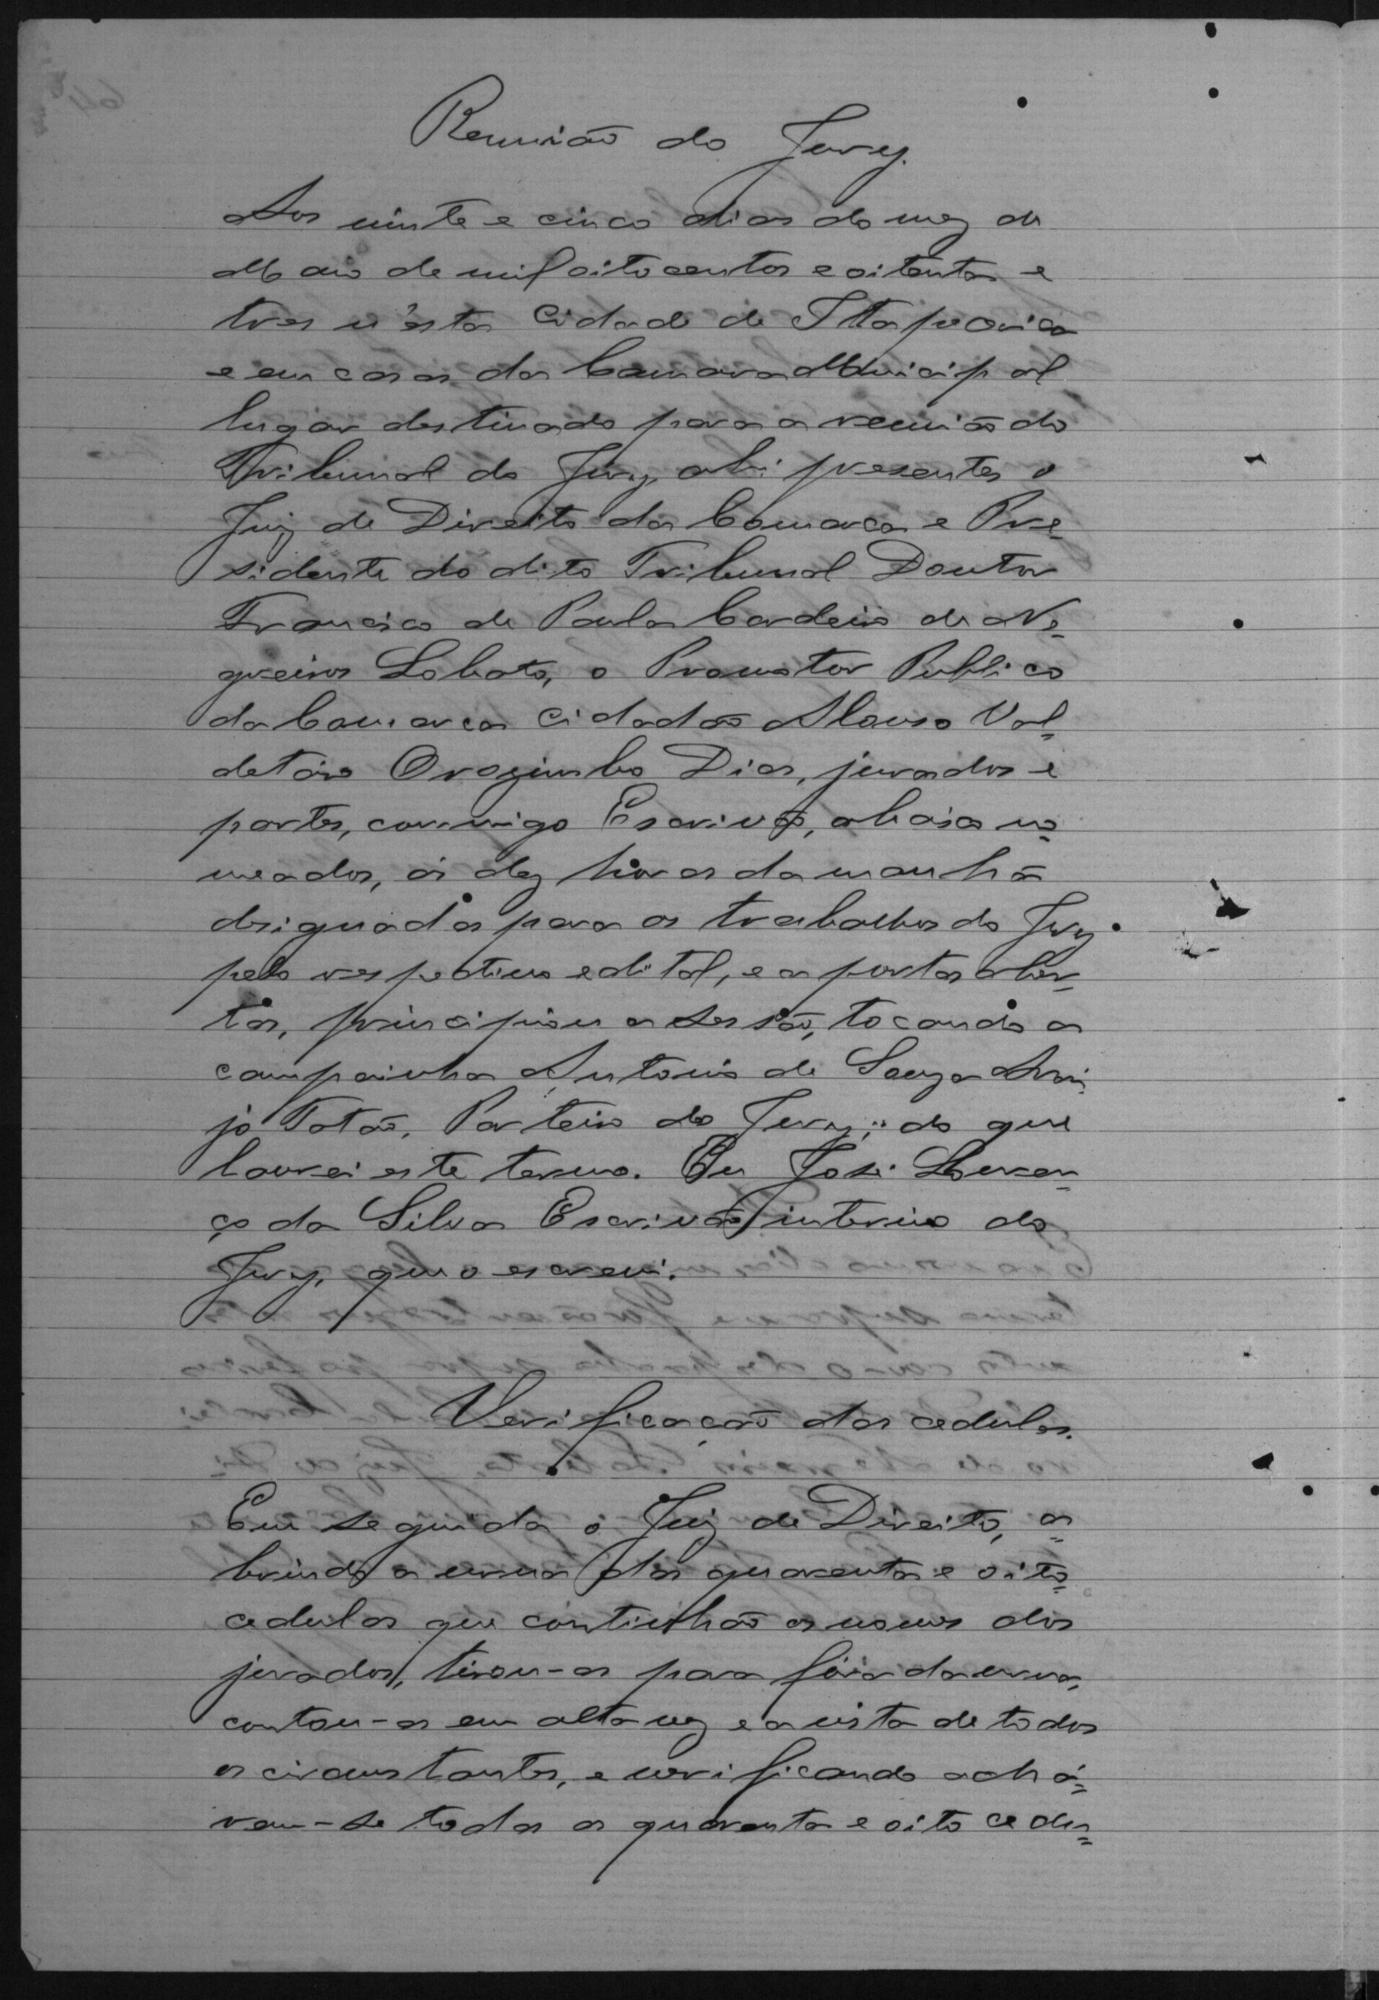 Reunião do Jury.
Aos vinte e cinco dias do mez de
Maio de mil oitocentos e oitenta e
tres n'esta Cidade de Itapecerica
e em casa da Camara Municipal
lugar destinado para a reunião do
Tribunal do Jury, ahi presentes o
Juiz de Direito da Comarca e Pre=
sidente do dito Tribunal Doutor
Francisco de Paula Cordeiro de Ne=
greiros Lobato, o Promotor Publico
da Comarca Cidadão Alonso Val=
detaro Orozimbo Dias, jurados e
partes, commigo Escrivão, abaixo no=
meados, ás dez horas da manhã
designadas para os trabalhos do Jury
pelo respectivo edital, e a portas aber=
tas, principiou a sessão, tocando a
campainha Antonio de Souza Arau
jo Totão, Porteiro do Jury; do que
lavrei este termo. Eu José Louren=
ço da Silva Escrivão interino do
Jury, que o escrevi.
Verificação das cedulas.
Em seguida o Juiz de Direito, a=
brindo a urna das quarenta e oito
cedulas que continhão os nomes dos
jurados, tirou-as para fóra da urna,
contou-as em alta voz e a vista de todos
os circunstantes, e verificando achá=
vam-se todas as quarenta e oito cedu=